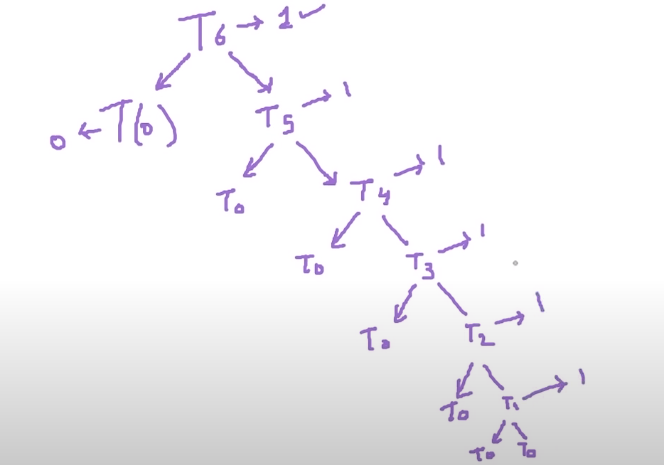 T6 → 1 ✓
0 ← T(0)
T5 → 1
T0
T4 → 1
T0
T3 → 1
T0
T2 → 1
T0
T1 → 1
T0 T0